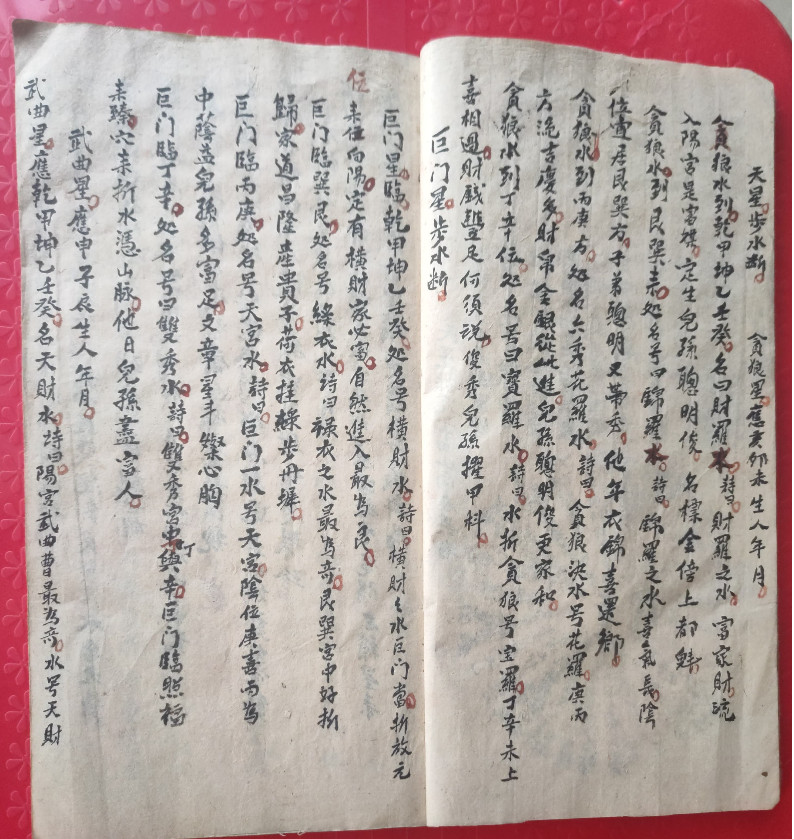 天星步水断　貪狼星應亥卯未生人年月
貪狼水到乾甲坤乙壬癸名曰財羅水詩曰財羅之水富家財琉
入陽宮是富媒定生兒孫聰明俊名標金榜上都魁
貪狼水到艮巽未处名号曰錦羅水詩曰錦羅之水喜氣長陰
位壷居艮巽方子若聰明又帶秀他年衣錦喜還鄉
貪狼水到丙庚方处名六秀花羅水詩曰貪狼决水号花羅庚丙
方流吉慶多財帛金銀從此進兒孫聰明俊更家和
貪狼水到丁辛位处名号曰寳羅水詩曰水折貪狼号宝羅丁辛未上
喜相遇財戲豊足何須説俊秀兒孫擢甲科
巨门星步水断
巨门星臨乾甲坤乙壬癸处名号横財水詩曰横財之水巨门當折放元
未伍向陽定有横財家必富自然進入最為良
位
巨门臨巽艮处名号綠衣水詩曰祿衣之水最為竒艮巽宮中好折
歸家道昌隆產貴子荷衣挂綠步丹墀
巨门臨丙庚处名号天宮水詩曰巨门一水号天宮陰位庚喜丙為
中蔭益兒孫多富足文章星斗燦心胸
巨门臨丁辛处名号曰雙秀水詩曰雙秀宮中與辛巨门臨照福
丁
未臻穴未折水憑山脉他日兒孫盡富人
武曲星應申子辰生人年月
武曲星應乾甲坤乙壬癸名天財水詩曰陽宮武曲曹最為竒水号天財